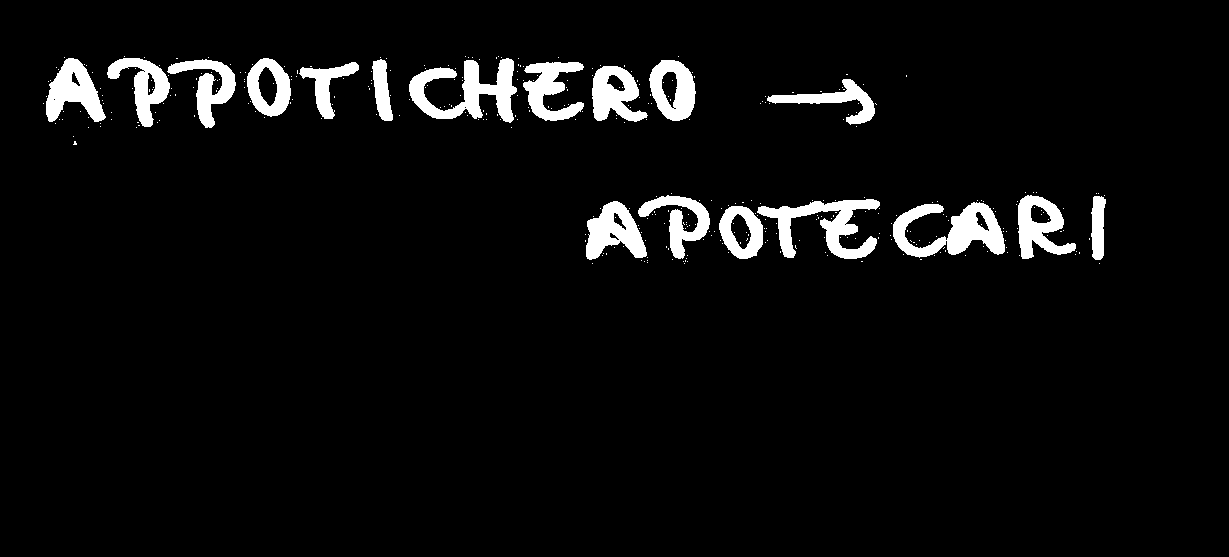 APPOTICHERO →
APOTECARI